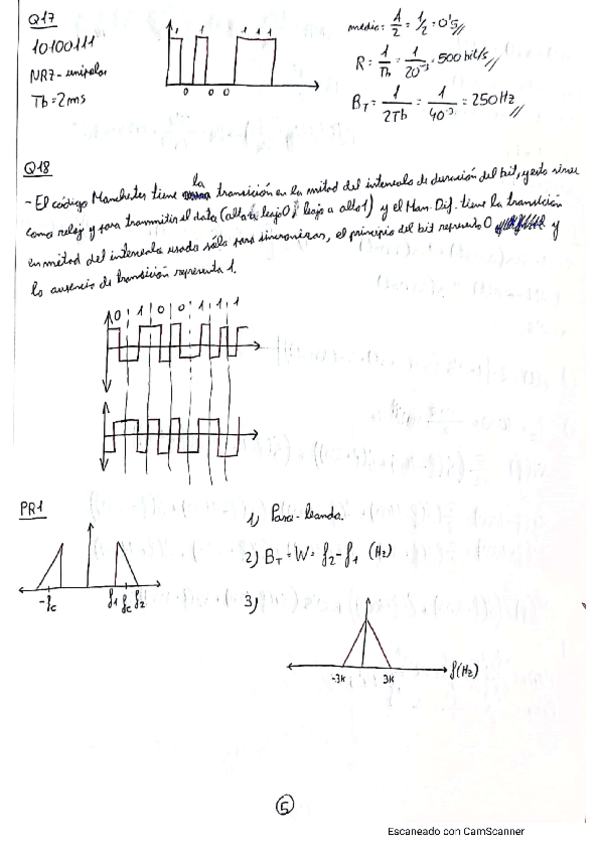 Q17
10100111
NRZ-unipolar
Tb=2ms
1 1 1 1 1
0 0 0
media: A/2 = 1/2 = 0'5//
R = 1/Tb = 1/20⁻³ = 500 bit/s//
B_T = 1/2Tb = 1/40⁻³ = 250Hz//
Q18
- El código Manchester tiene la transición en la mitad del intervalo de duración del bit, y esto sirve
como reloj y para transmitir el data (alto a bajo 0, bajo a alto 1) y el Man. Dif. tiene la transición
en mitad del intervalo usada solo para sincronizar, el principio del bit representa 0 y
la ausencia de transición representa 1.
0 1 0 0 1 1 1
PR1
1) Pasa-banda.
2) B_T = W = f2-f1 (Hz)
3)
-fc f1 fc f2
-3k 3k f(Hz)
5
Escaneado con CamScanner